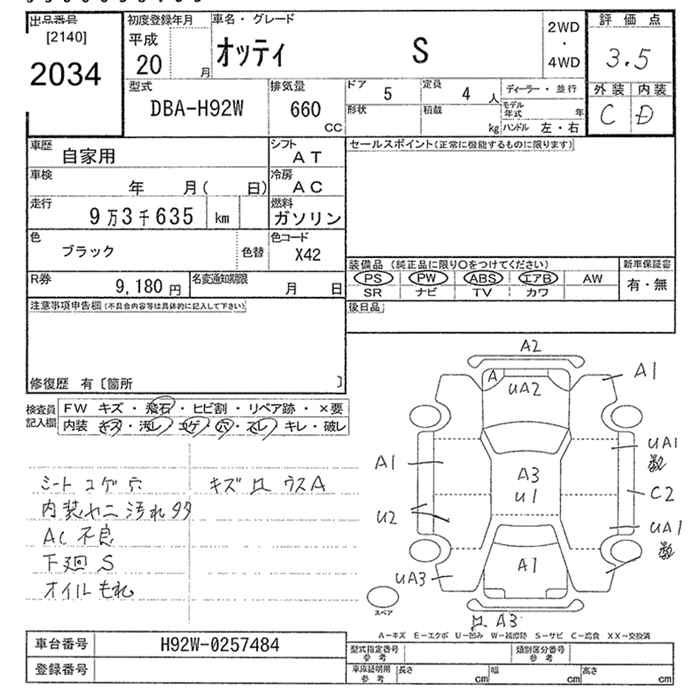 出品番号
[2140]
2034
初度登録年月
平成
20 月
車名・グレード
オッティ S
2WD
・
4WD
評価点
3.5
外装 内装
C D
型式
DBA-H92W
排気量
660
CC
ドア
5
定員
4 人
ディーラー・並行
形状
積載
kg
モデル年式 年
ハンドル 左・右
車歴
自家用
シフト
AT
セールスポイント(正常に機能するものに限ります)
車検
年 月( 日)
冷房
AC
走行
9万3千635 km
燃料
ガソリン
色
ブラック
色替
色コード
X42
装備品 (純正品に限り○をつけてください)
新車保証書
PS PW ABS エアB AW
有・無
SR ナビ TV カワ
R券
9,180 円
名変通知期限
月 日
後日品
注意事項申告欄(不具合内容等は具体的に記入して下さい)
修復歴 有〔箇所 〕
検査員記入欄
FW キズ・飛石・ヒビ割・リペア跡・×要
内装 キズ・汚レ・コゲ・穴・スレ・キレ・破レ
シート コゲ 穴
キズ ロ ウスA
内装ヤニ 汚れタタ
AC 不良
下廻 S
オイルもれ
A2
A UA2
A1
A1
UA1
数
A3
U1
C2
U2
UA1
数
UA3
A1
スペア
ロ A3
A-キズ E-エクボ U-凹み W-補修跡 S-サビ C-腐食 XX-交換済
車台番号
H92W-0257484
型式指定番号
参考
類別区分番号
参考
登録番号
車庫証明用
参考
長さ cm
幅 cm
高さ cm